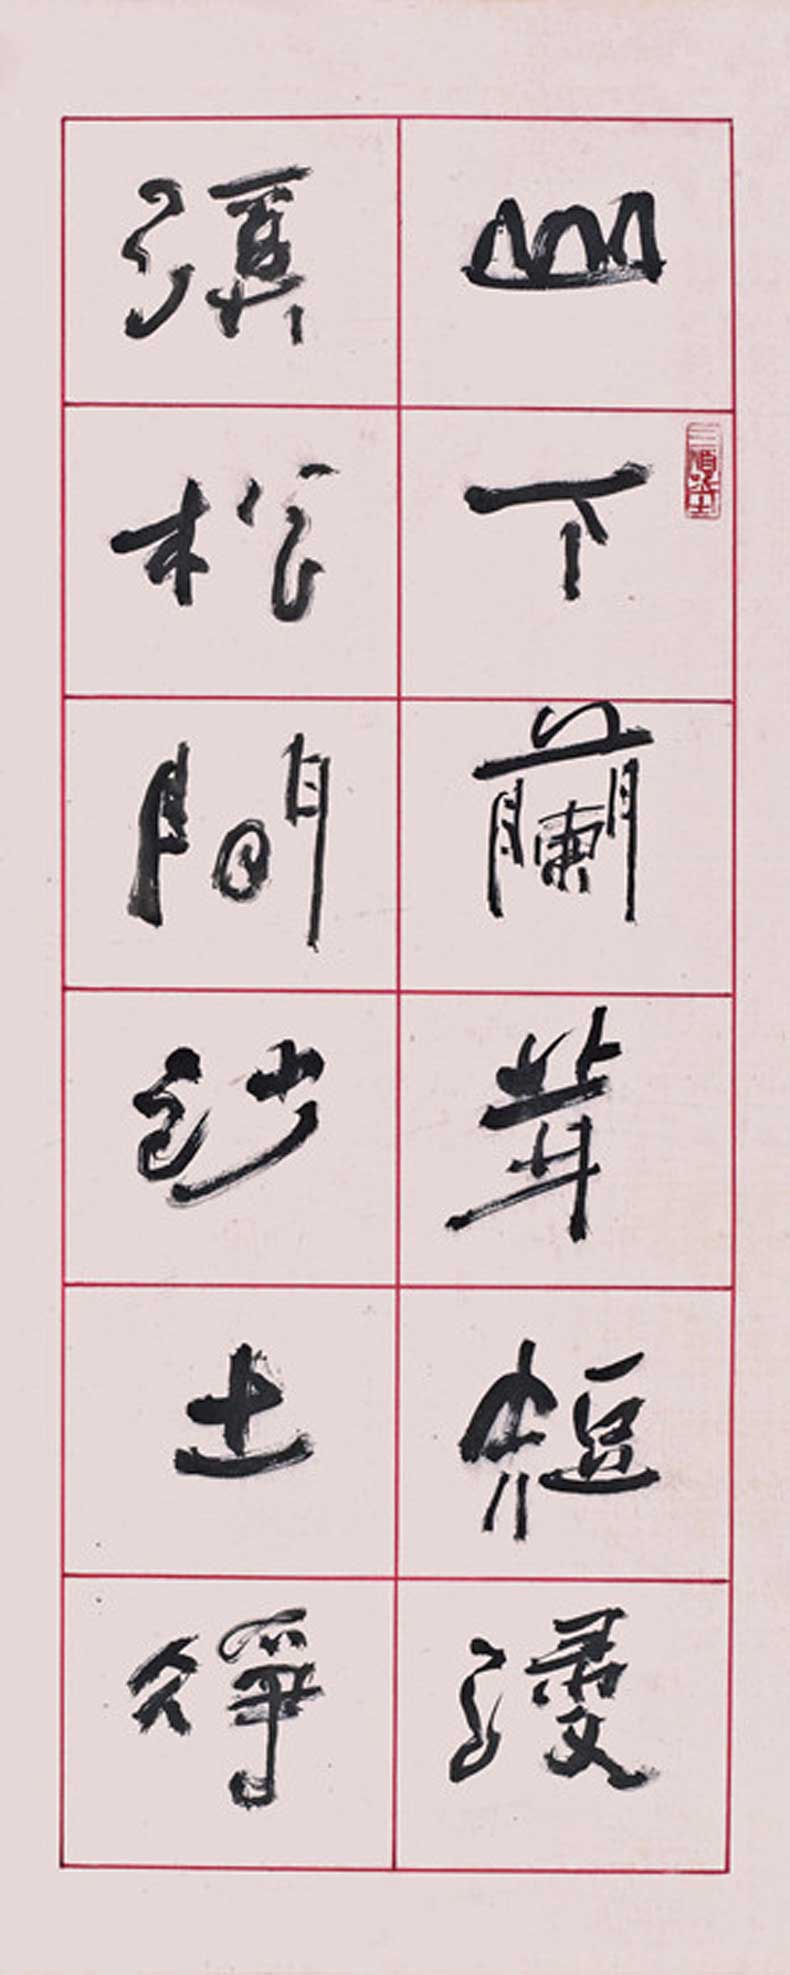 山下蘭芽短浸
溪松間沙土淨